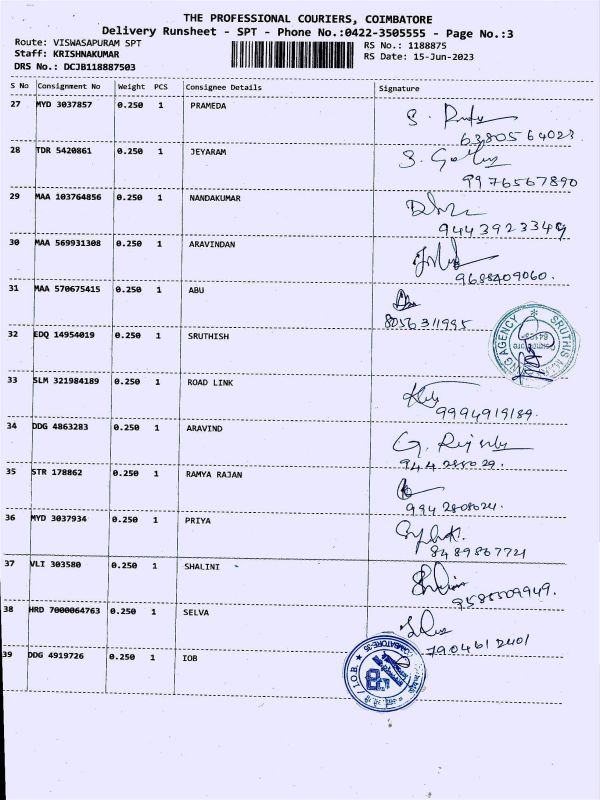 THE PROFESSIONAL COURIERS, COIMBATORE
Delivery Runsheet - SPT - Phone No.:0422-3505555 - Page No.:3
Route: VISWASAPURAM SPT RS No.: 1188875
Staff: KRISHNAKUMAR RS Date: 15-Jun-2023
DRS No.: DCJB118887503
S No Consignment No Weight PCS Consignee Details Signature
27 MYD 3037857 0.250 1 PRAMEDA
6380564023
28 TDR 5420861 0.250 1 JEYARAM
9976567890
29 MAA 103764856 0.250 1 NANDAKUMAR
9443923349
30 MAA 569931308 0.250 1 ARAVINDAN
9688409060.
31 MAA 570675415 0.250 1 ABU
8056311995
32 EDQ 14954019 0.250 1 SRUTHISH
33 SLM 321984189 0.250 1 ROAD LINK
9994919189.
34 DDG 4863283 0.250 1 ARAVIND
35 STR 178862 0.250 1 RAMYA RAJAN
994 2808024.
36 MYD 3037934 0.250 1 PRIYA
8489867721
37 VLI 303580 0.250 1 SHALINI
38 HRD 7000064763 0.250 1 SELVA
7904612401
39 DDG 4919726 0.250 1 IOB